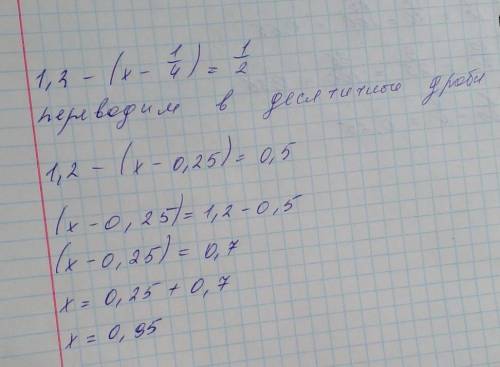 1,2 - (x - 1/4) = 1/2
переводим в десятичные дроби
1,2 - (x - 0,25) = 0,5
(x - 0,25) = 1,2 - 0,5
(x - 0,25) = 0,7
x = 0,25 + 0,7
x = 0,95